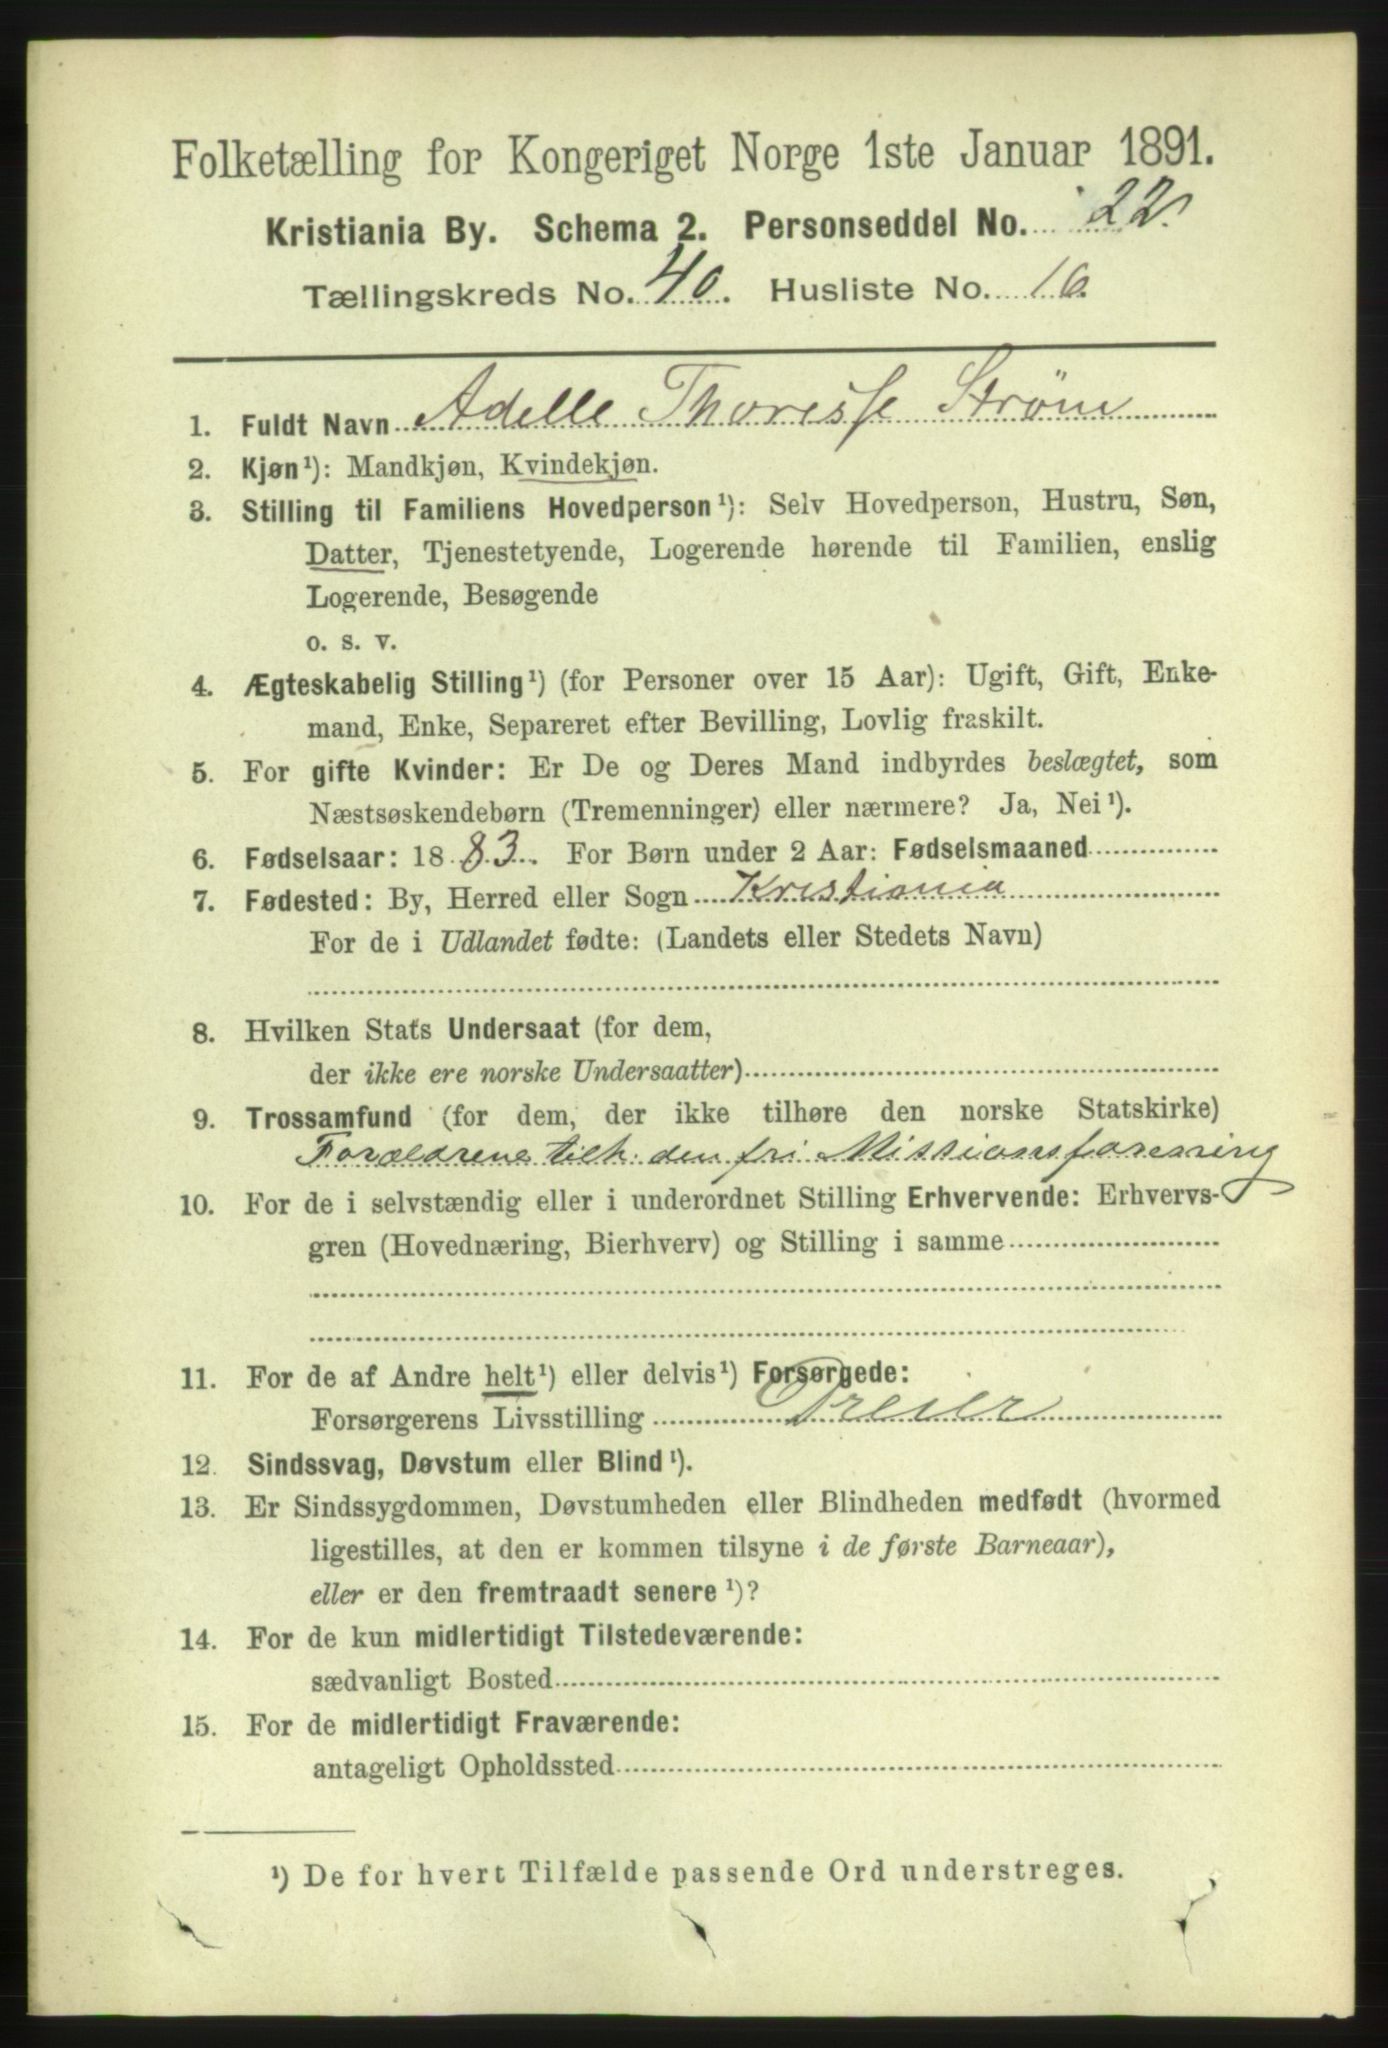 Folketælling for Kongeriget Norge 1ste Januar 1891.
Kristiania By. Schema 2. Personseddel No. 22.
Tællingskreds No. 40. Husliste No. 16.
1. Fuldt Navn Adelle Thoresse Strøm
2. Kjøn¹): Mandkjøn, Kvindekjøn.
3. Stilling til Familiens Hovedperson¹): Selv Hovedperson, Hustru, Søn,
Datter, Tjenestetyende, Logerende hørende til Familien, enslig
Logerende, Besøgende
o. s. v.
4. Ægteskabelig Stilling¹) (for Personer over 15 Aar): Ugift, Gift, Enke-
mand, Enke, Separeret efter Bevilling, Lovlig fraskilt.
5. For gifte Kvinder: Er De og Deres Mand indbyrdes beslægtet, som
Næstsøskendebørn (Tremenninger) eller nærmere? Ja, Nei¹).
6. Fødselsaar: 1883. For Børn under 2 Aar: Fødselsmaaned
7. Fødested: By, Herred eller Sogn Kristiania
For de i Udlandet fødte: (Landets eller Stedets Navn)
8. Hvilken Stats Undersaat (for dem,
der ikke ere norske Undersaatter)
9. Trossamfund (for dem, der ikke tilhøre den norske Statskirke)
Forældrene tilh. den fri Missionsforening
10. For de i selvstændig eller i underordnet Stilling Erhvervende: Erhvervs-
gren (Hovednæring, Bierhverv) og Stilling i samme
11. For de af Andre helt¹) eller delvis¹) Forsørgede:
Forsørgerens Livsstilling Dreier
12. Sindssvag, Døvstum eller Blind¹).
13. Er Sindssygdommen, Døvstumheden eller Blindheden medfødt (hvormed
ligestilles, at den er kommen tilsyne i de første Barneaar),
eller er den fremtraadt senere¹)?
14. For de kun midlertidigt Tilstedeværende:
sædvanligt Bosted
15. For de midlertidigt Fraværende:
antageligt Opholdssted
¹) De for hvert Tilfælde passende Ord understreges.